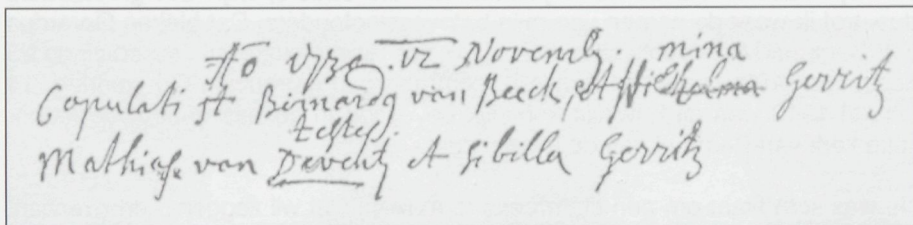 Ao 12 Novemb. mina
Copulati st Bernardq van Beeck, et Wilhelma Gerritz
testes.
Mathias van Deventz et Sibilla Gerritz